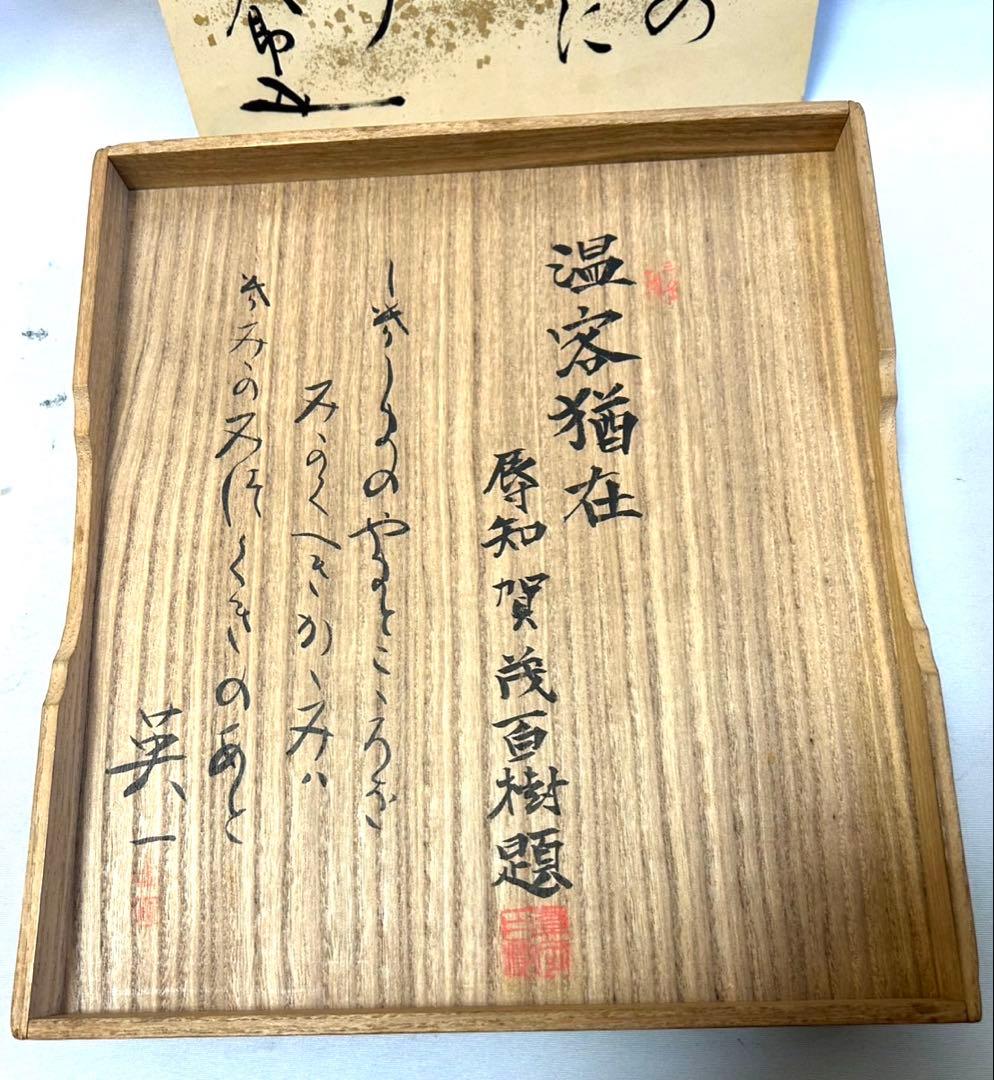 の
に
郎
温容猶在
辱知 賀茂百樹題
しきしまのやまとこゝろを
みかくへきかゝみハ
きみのみつくきのあと
英一